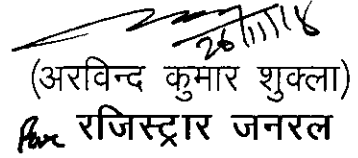 26/11/18
(अरविन्द कुमार शुक्ला)
रजिस्ट्रार जनरल